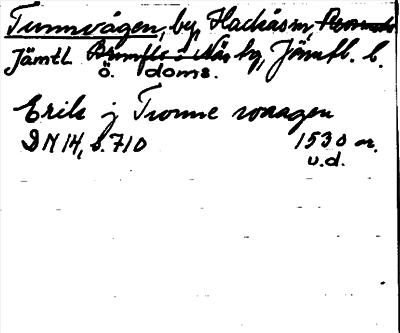 Tunnvågen, by, Hackås sn,
Jämtl. Brunflo o. Näs tg, Jämtl. l.
ö. doms.
Erik j Tvonne vaagen
DN 14, s. 710 1530 m.
u.d.